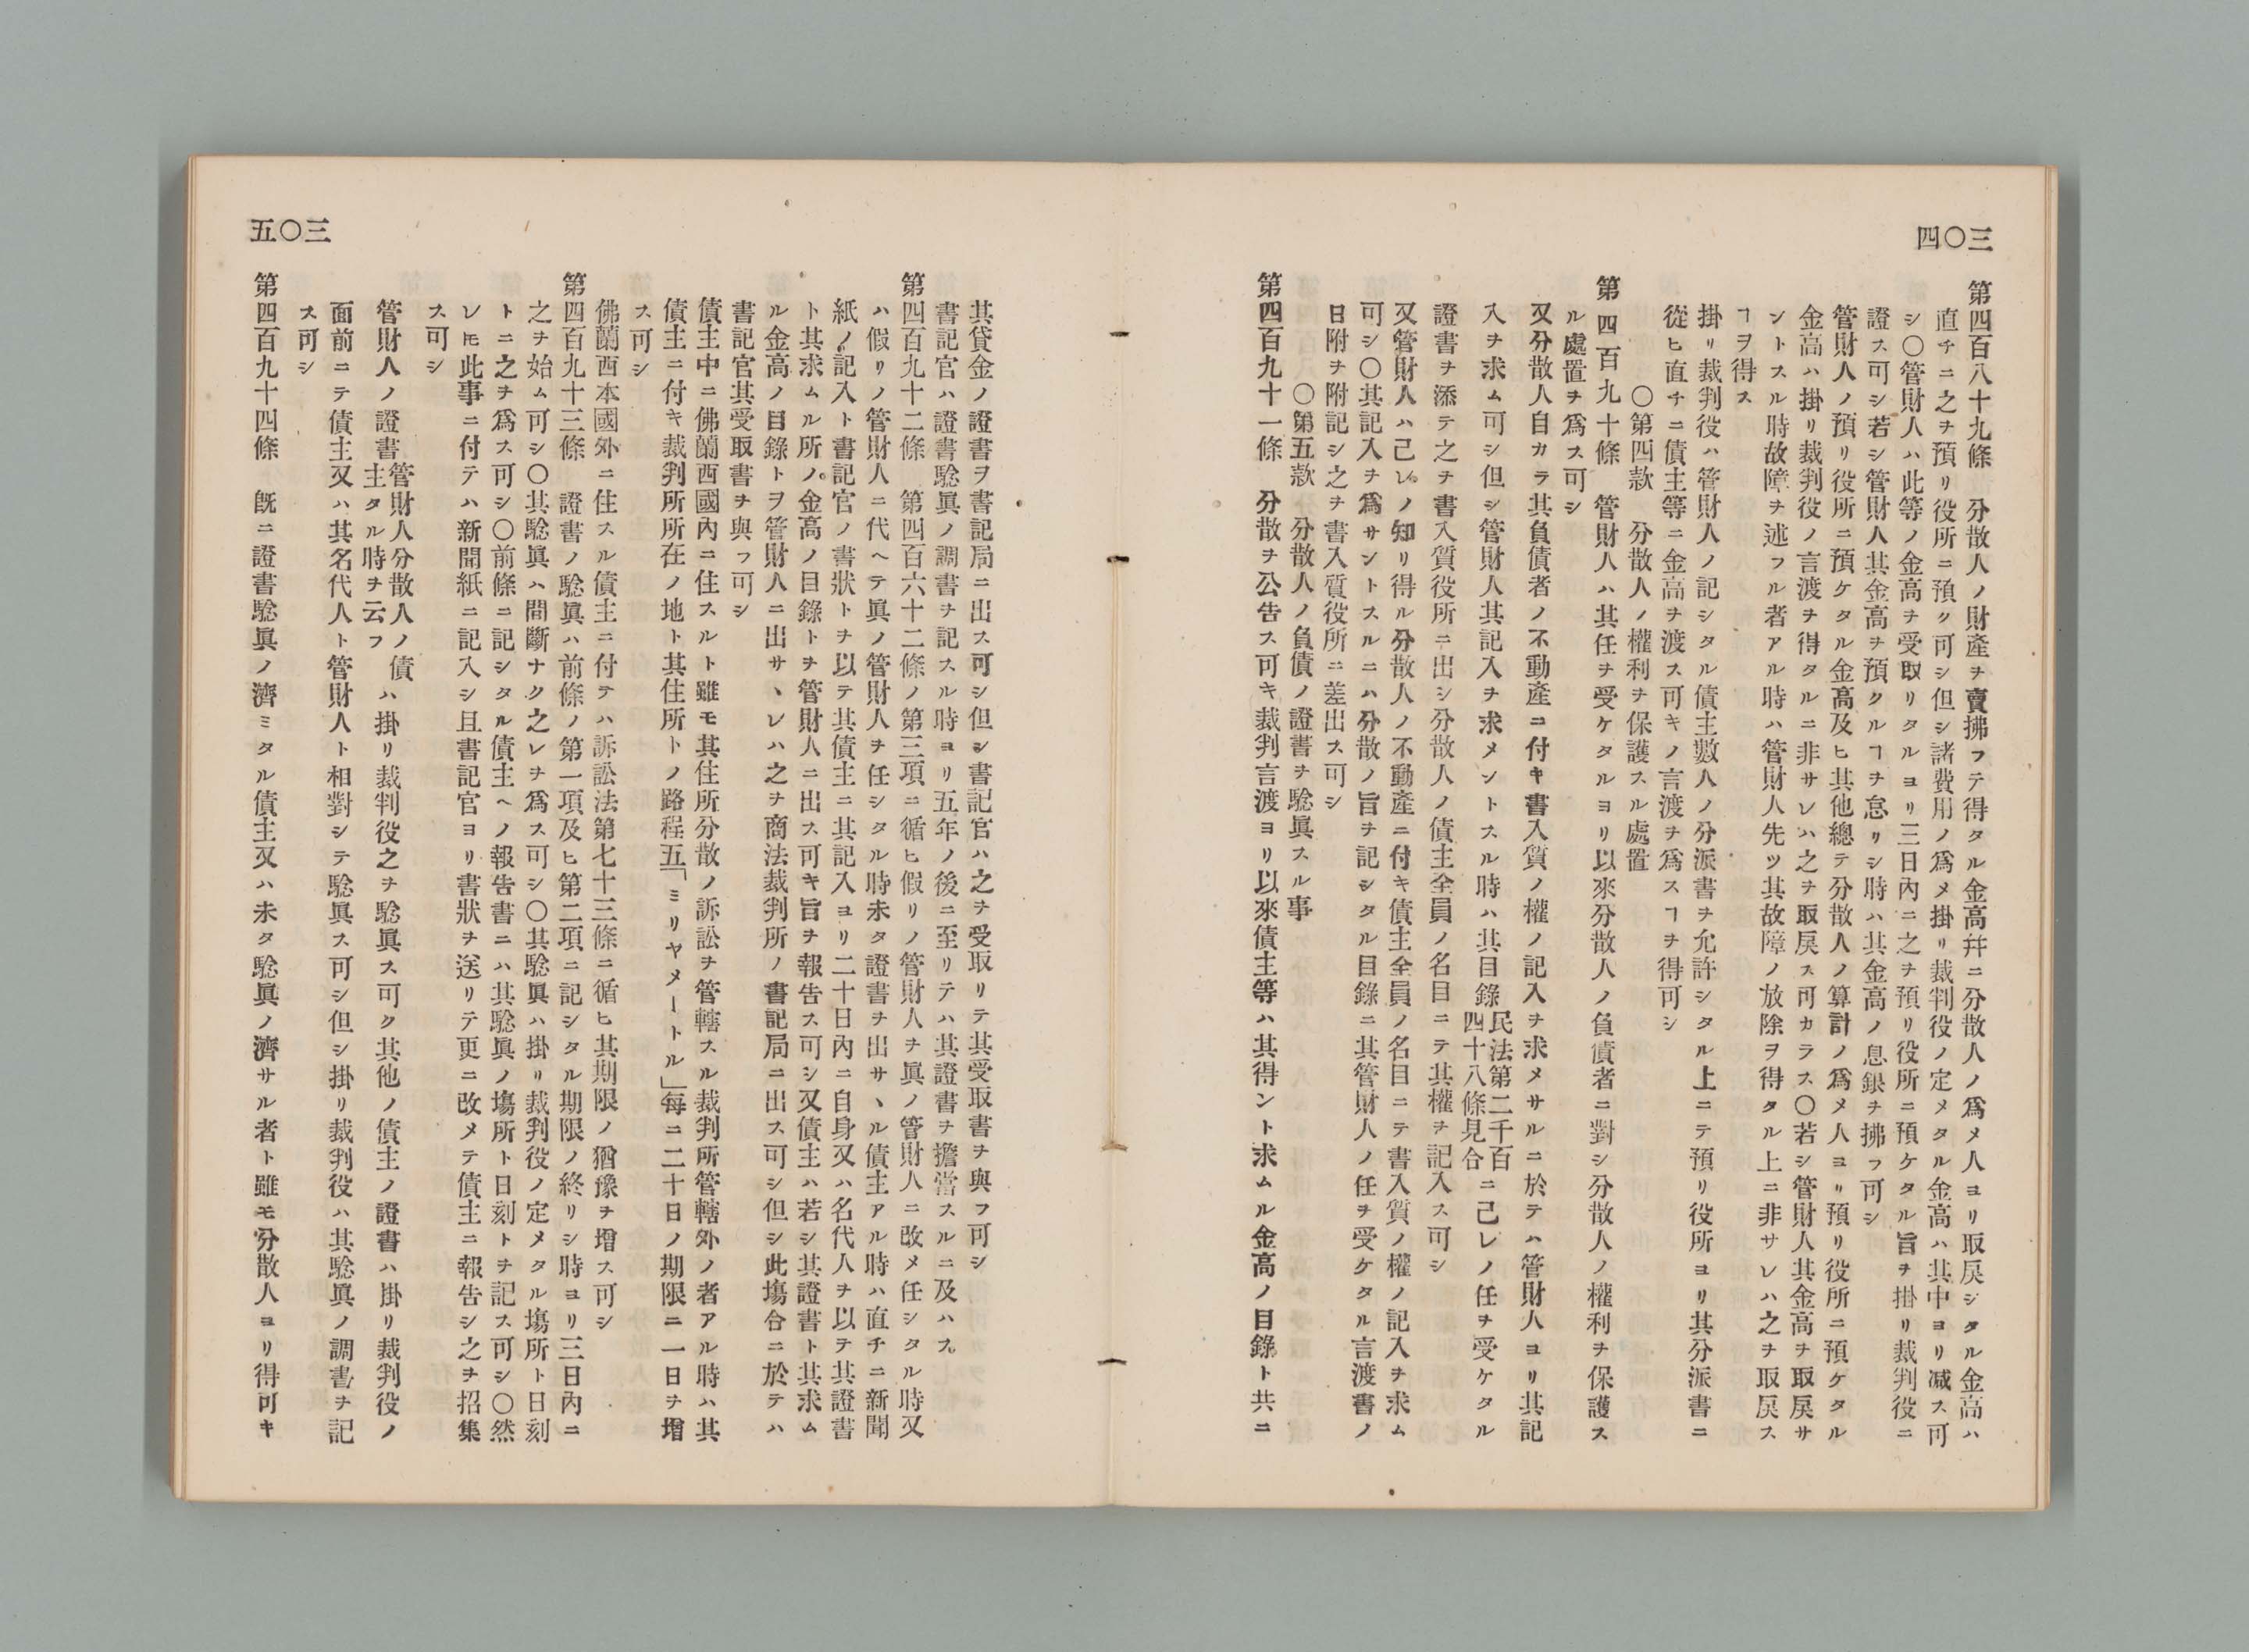 三〇四
第四百八十九條　分散人ノ財產ヲ賣拂フテ得タル金高幷ニ分散人ノ爲メ人ヨリ取戾シタル金高ハ
直チニ之ヲ預リ役所ニ預ク可シ但シ諸費用ノ爲メ掛リ裁判役ノ定メタル金高ハ其中ヨリ減ス可
シ〇管財人ハ此等ノ金高ヲ受取リタルヨリ三日內ニ之ヲ預リ役所ニ預ケタル旨ヲ掛リ裁判役ニ
證ス可シ若シ管財人其金高ヲ預クルヿヲ怠リシ時ハ其金高ノ息銀ヲ拂フ可シ
管財人ノ預リ役所ニ預ケタル金高及ヒ其他總テ分散人ノ算計ノ爲メ人ヨリ預リ役所ニ預ケタル
金高ハ掛リ裁判役ノ言渡ヲ得タルニ非サレハ之ヲ取戾ス可カラス〇若シ管財人其金高ヲ取戾サ
ントスル時故障ヲ述フル者アル時ハ管財人先ツ其故障ノ放除ヲ得タル上ニ非サレハ之ヲ取戾ス
ヿヲ得ス
掛リ裁判役ハ管財人ノ記シタル債主數人ノ分派書ヲ允許シタル上ニテ預リ役所ヨリ其分派書ニ
從ヒ直チニ債主等ニ金高ヲ渡ス可キノ言渡ヲ爲スヿヲ得可シ
〇第四款　分散人ノ權利ヲ保護スル處置
第四百九十條　管財人ハ其任ヲ受ケタルヨリ以來分散人ノ負債者ニ對シ分散人ノ權利ヲ保護ス
ル處置ヲ爲ス可シ
又分散人自カラ其負債者ノ不動產ニ付キ書入質ノ權ノ記入ヲ求メサルニ於テハ管財人ヨリ其記
入ヲ求ム可シ但シ管財人其記入ヲ求メントスル時ハ其目錄民法第二千百四十八條見合ニ己レノ任ヲ受ケタル
證書ヲ添テ之ヲ書入質役所ニ出シ分散人ノ債主全員ノ名目ニテ其權ヲ記入ス可シ
又管財人ハ己レノ知リ得ル分散人ノ不動產ニ付キ債主全員ノ名目ニテ書入質ノ權ノ記入ヲ求ム
可シ〇其記入ヲ爲サントスルニハ分散ノ旨ヲ記シタル目錄ニ其管財人ノ任ヲ受ケタル言渡書ノ
日附ヲ附記シ之ヲ書入質役所ニ差出ス可シ
〇第五款　分散人ノ負債ノ證書ヲ驗眞スル事
第四百九十一條　分散ヲ公告ス可キ裁判言渡ヨリ以來債主等ハ其得ント求ムル金高ノ目錄ト共ニ
三〇五
其貸金ノ證書ヲ書記局ニ出ス可シ但シ書記官ハ之ヲ受取リテ其受取書ヲ與フ可シ
書記官ハ證書驗眞ノ調書ヲ記スル時ヨリ五年ノ後ニ至リテハ其證書ヲ擔當スルニ及ハス
第四百九十二條　第四百六十二條ノ第三項ニ循ヒ假リノ管財人ヲ眞ノ管財人ニ改メ任シタル時又
ハ假リノ管財人ニ代ヘテ眞ノ管財人ヲ任シタル時未タ證書ヲ出サヽル債主アル時ハ直チニ新聞
紙ノ記入ト書記官ノ書狀トヲ以テ其債主ニ其記入ヨリ二十日內ニ自身又ハ名代人ヲ以テ其證書
ト其求ムル所ノ金高ノ目錄トヲ管財人ニ出ス可キ旨ヲ報告ス可シ又債主ハ若シ其證書ト其求ム
ル金高ノ目錄トヲ管財人ニ出サヽレハ之ヲ商法裁判所ノ書記局ニ出ス可シ但シ此塲合ニ於テハ
書記官其受取書ヲ與フ可シ
債主中ニ佛蘭西國內ニ住スルト雖モ其住所分散ノ訴訟ヲ管轄スル裁判所管轄外ノ者アル時ハ其
債主ニ付キ裁判所所在ノ地ト其住所トノ路程五「ミリヤメートル」每ニ二十日ノ期限ニ一日ヲ增
ス可シ
佛蘭西本國外ニ住スル債主ニ付テハ訴訟法第七十三條ニ循ヒ其期限ノ猶豫ヲ增ス可シ
第四百九十三條　證書ノ驗眞ハ前條ノ第一項及ヒ第二項ニ記シタル期限ノ終リシ時ヨリ三日內ニ
之ヲ始ム可シ〇其驗眞ハ間斷ナク之レヲ爲ス可シ〇其驗眞ハ掛リ裁判役ノ定メタル塲所ト日刻
トニ之ヲ爲ス可シ〇前條ニ記シタル債主ヘノ報告書ニハ其驗眞ノ塲所ト日刻トヲ記ス可シ〇然
レ𪜈此事ニ付テハ新聞紙ニ記入シ且書記官ヨリ書狀ヲ送リテ更ニ改メテ債主ニ報告シ之ヲ招集
ス可シ
管財人ノ證書管財人分散人ノ債主タル時ヲ云フハ掛リ裁判役之ヲ驗眞ス可ク其他ノ債主ノ證書ハ掛リ裁判役ノ
面前ニテ債主又ハ其名代人ト管財人ト相對シテ驗眞ス可シ但シ掛リ裁判役ハ其驗眞ノ調書ヲ記
ス可シ
第四百九十四條　旣ニ證書驗眞ノ濟ミタル債主又ハ未タ驗眞ノ濟サル者ト雖モ分散人ヨリ得可キ